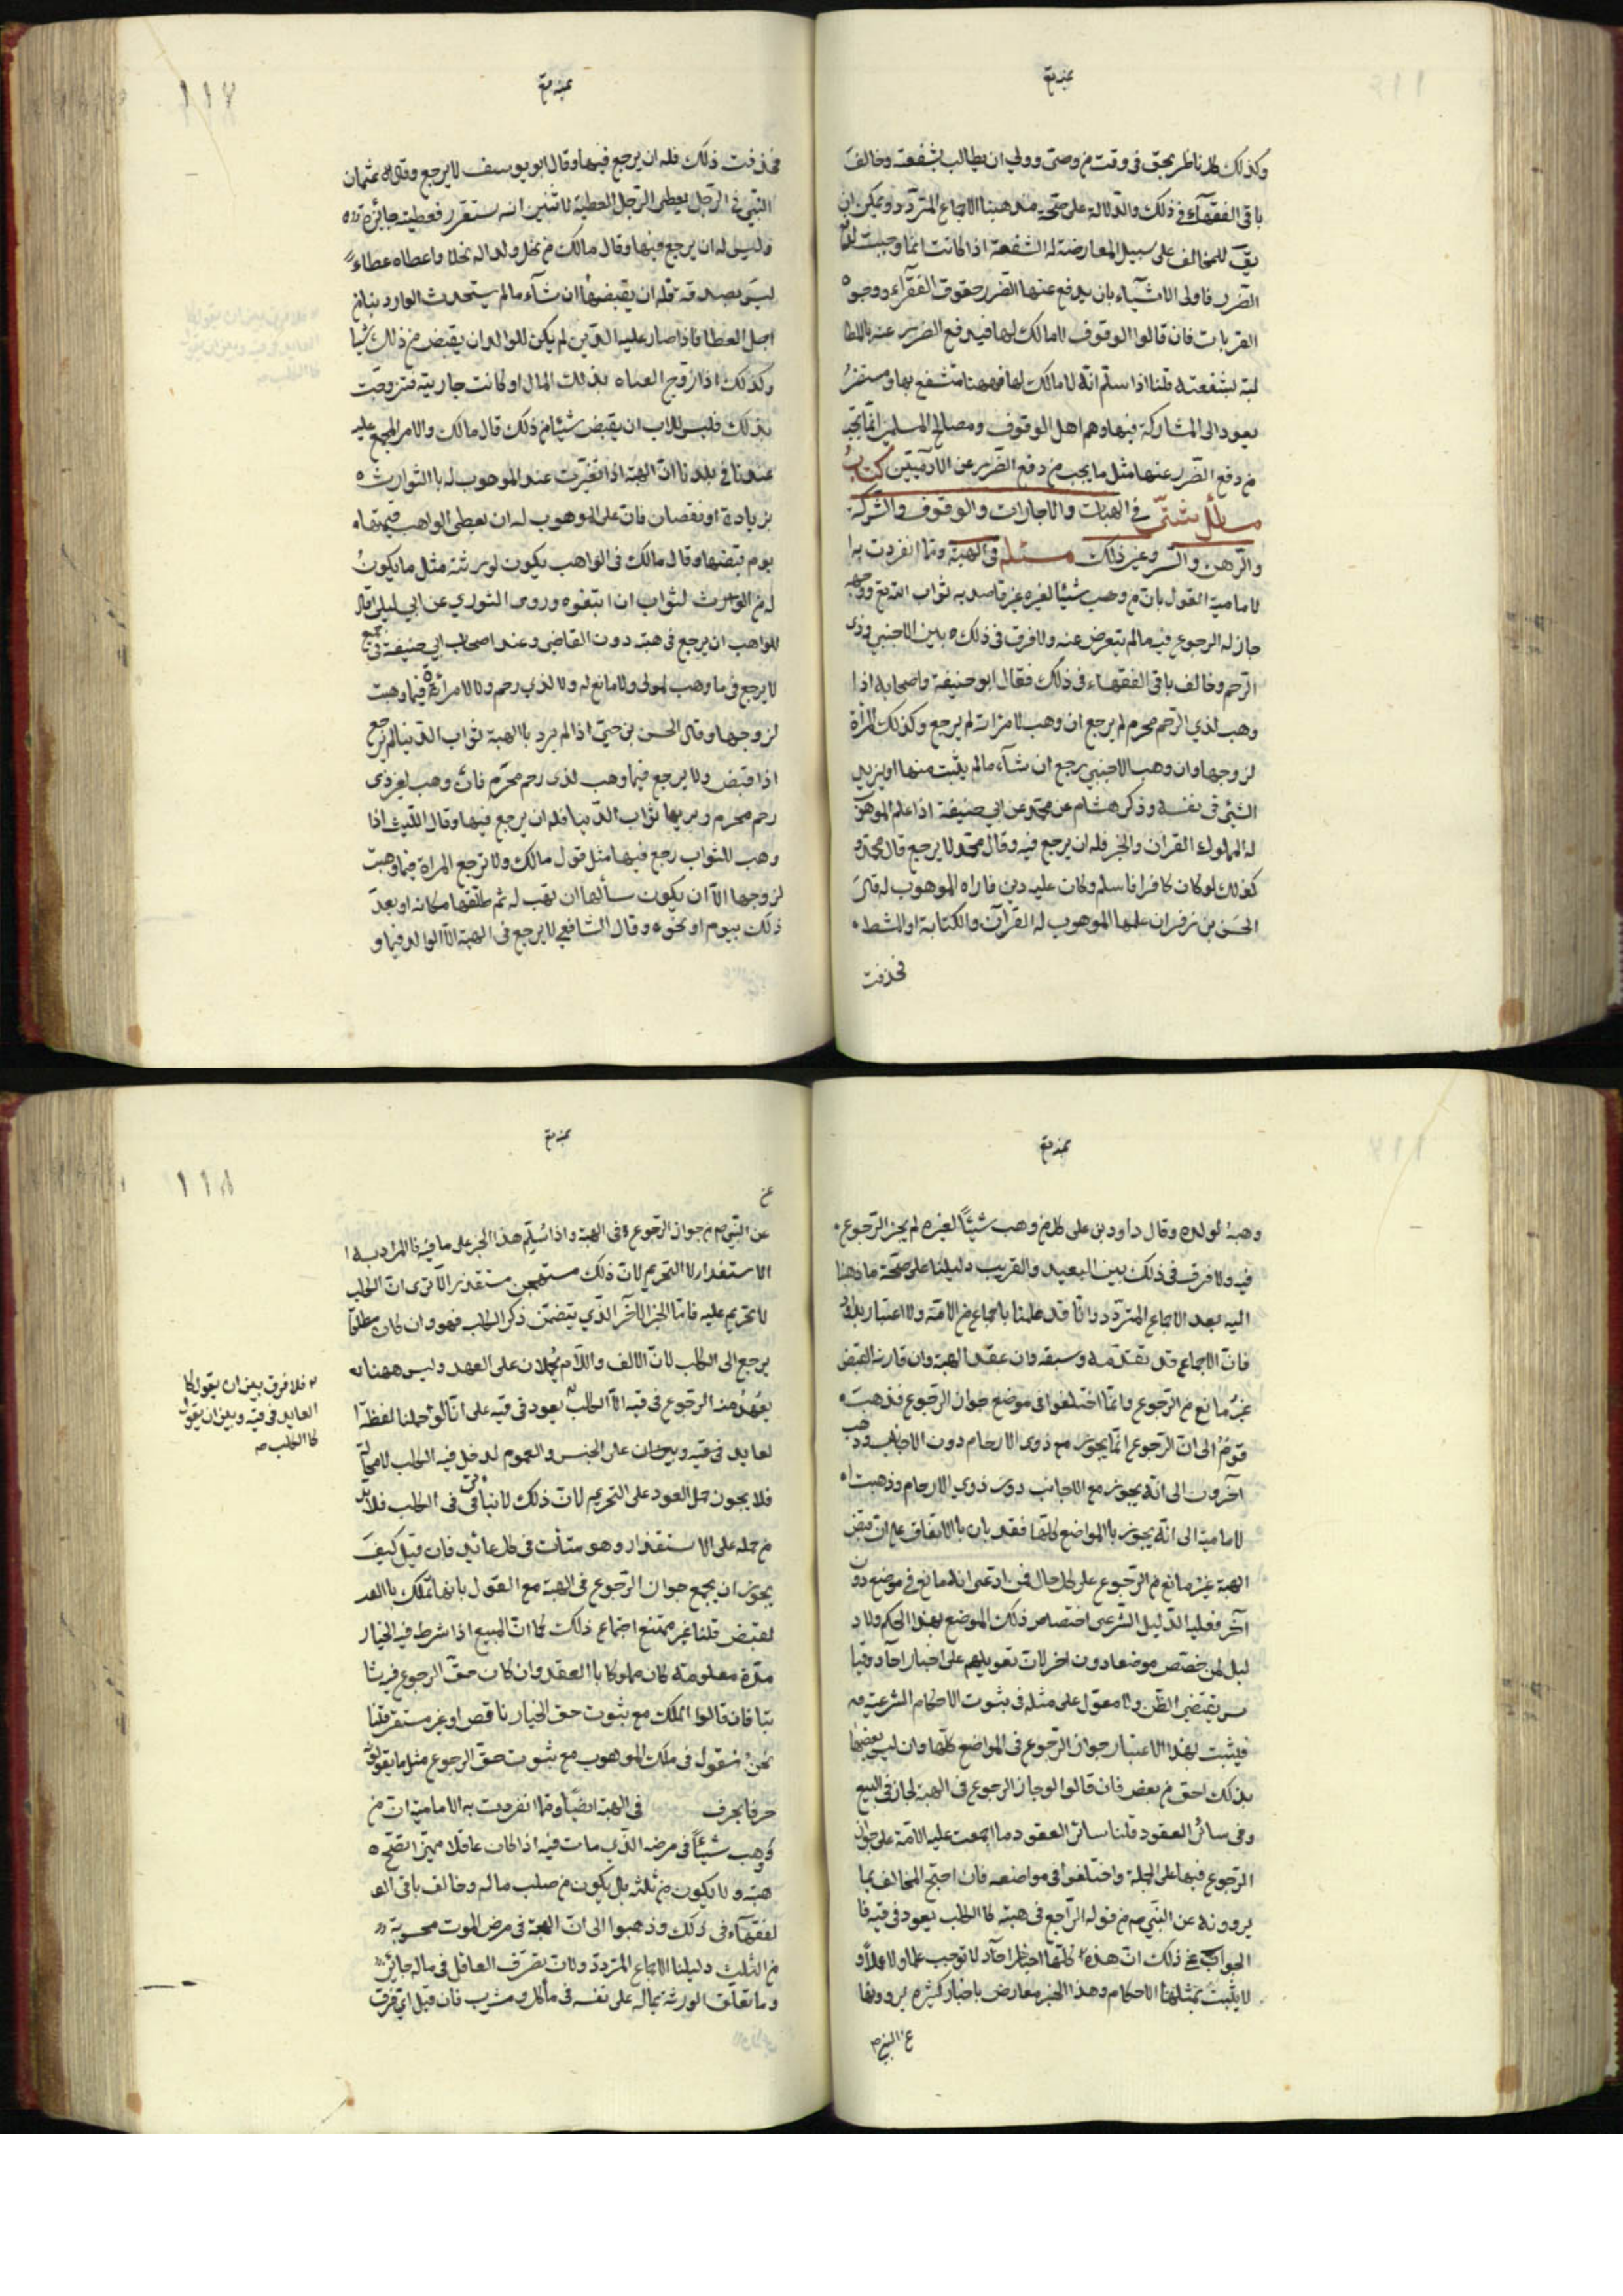 وكذلك كل ناظر بحق في وقت من وصي وولي ان يطالب بشفعته وخالف
باقي الفقهآء في ذلك والدلالة على صحة مذهبنا الاجماع المتردد ويمكن ان
يق للمخالف على سبيل المعارضة له الشفعة اذا كانت انما وجبت لدفع
الضرر فاولى الاشيآء بان يدفع عنها الضرر حقوق الفقرآء ووجوه
القربات فان قالوا الوقوف لا مالك لها فيدفع الضرر عنه بالمطا
لبة بشفعته قلنا اذا سلم انه لا مالك لها فههنا منتفع بها ومستضر
يعود الى المشاركة فيها وهم اهل الوقوف ومصالح المسلمين انما يجب
من دفع الضرر عنها مثل ما يجب من دفع الضرر عن الآدميين كتاب
مسائل شتى في الهبات والاجارات والوقوف والشركة
والرهن وغير ذلك مسئلة في الهبة ومما انفردت به ا
لامامية القول بان من وهب شيئا لغيره غير قاصد به ثواب الله تع ووجهه
جاز له الرجوع فيه مالم يتعوض عنه ولا فرق في ذلك بين الاجنبي وذي
الرحم وخالف باقي الفقهاء في ذلك فقال ابو حنيفة واصحابه اذا
وهب لذي الرحم محرم لم يرجع ان وهب لامراته لم يرجع وكذلك المرأة
لزوجها وان وهب الاجنبي يرجع ان شآء مالم يثبت منها او يزيد
الشئ في نفسه وذكر هشام عن محمد عن ابي حنيفة اذا علم الموهوب
له المملوك القران والخبز فله ان يرجع فيه وقال محمد لا يرجع قال محمد و
كذلك لو كان كافرا فاسلم وكان عليه دين فاداه الموهوب له قال
الحسن بن زفر ان علمها الموهوب له القرآن والكتابة او المشط
فحذقت
فحذقت ذلك فله ان يرجع فيها وقال ابو يوسف لا يرجع وقال عثمان
البتي في الرجل يعطي الرجل العطية لا تبين انه يستغزر فعطيته جائزة
وليس له ان يرجع فيها وقال مالك من نحل ولدا له نحلا واعطاه عطاء
ليس بصدقة فله ان يقبضها ان شآء مالم يستحدث الوارد بنا من
اجل العطا فاذا صار عليه الدين لم يكن للوالد ان يقبض من ذلك شيا
وكذلك اذا زوج الفتاه بذلك المال او كانت جارية فتزوجت
بذلك فليس للاب ان يقبض شيئا من ذلك قال مالك والامر المجمع عليه
عندنا في بلدنا ان الهبة اذا تغيرت عند الموهوب له با الثوارث
بزيادة او نقصان فان على الموهوب له ان يعطى الواهب قيمتها
يوم قبضها وقال مالك في الواهب يكون لورثته مثل ما يكون
له من الوارث لثواب ان اتبعوه وروى الثوري عن ابي ليلى قال
للواهب ان يرجع في هبته دون القاضي وعند اصحاب ابي حنيفة في جميع
لا يرجع في ما وهب لمولى ولا مانع له ولا لذي رحم ولا لامرائة فيما وهبت
لزوجها وقال الحسن بن حي اذا لم يرد با الهبة ثواب الدنيا لم يرجع
اذا قبض ولا يرجع فيما وهب لذى رحم محرم فان وهب لغير ذي
رحم محرم ويريها ثواب الدنيا فله ان يرجع فيها وقال الليث اذا
وهب للثواب رجع فيها مثل قول مالك ولا ترجع المراة فيما وهبت
لزوجها الآ ان يكون سألها ان تهب له ثم طلقها مكانه او بعد
ذلك بيوم او نحوه وقال الشافعي لا يرجع في الهبة الآ الوالد فيما و
وهبهُ لولده وقال داود بن على كل من وهب شيئاً لغيره لم يجز الرجوع
فيه ولا فرق في ذلك بين البعيد والقريب دليلنا على صحة ما ذهبنا
اليه بعد الاجماع المتردد وانا قد علمنا باجماع من الامة ولا اعتبار بداود
فان الاجماع قد تقدمه وسبقه وان عقد الهبة وان قارنه القبض
غير مانع من الرجوع وانما اختلفوا في موضع جواز الرجوع فذهبت
قوم الى ان الرجوع انما يجوز مع ذوى الارحام دون الاجانب وذهب
آخرون الى انه يجوز مع الاجانب دون ذوي الارحام وذهبت ا
لامامية الى انه يجوز با المواضع كلها فقد بان با الاتفاق على ان قبض
الهبة غير مانع من الرجوع على كل حال فمن ادعى انه مانع في موضع دون
آخر فعليه الدليل الشرعى اختصاص ذلك الموضع بهذا الحكم ولا د
ليل لمن خصص موضعا دون آخر لان تعويلهم على اخبار آحاد وقيا
س يقتضى الظن ولا معول على مثله في ثبوت الاحكام الشرعيه
فيثبت بهذا الاعتبار جواز الرجوع في المواضع كلها وان ليس بعضها
بذلك احق من بعض فان قالوا لو جاز الرجوع في الهبة لجاز في البيع
وفي سائر العقود قلنا سائر العقود ما اجمعت عليه الامة على جواز
الرجوع فيها على الجملة واختلفوا في مواضعه فان احتج المخالف بما
يروونه عن النبي ص من قوله الراجع في هبته كا الكلب يعود في قيه فا
الجواب عن ذلك ان هذه كلها اخبار احآد لا توجب علما ولا عملاً و
لا يثبت بمثلها الاحكام وهذا الخبر معارض باخبار كثيره يروونها
عن النبي ص
عن
عن النبي ص من جواز الرجوع في الهبة واذا سُلِّم هذا الخبر على ما فيه فا المراد به ا
الاستقذار لا التحريم لان ذلك مستهجن مستقذر الا ترى ان الكلب
لا تحريم عليه فاما الخبر الآخر الذي يتضمن ذكر الكلب فهو وان كان مطلقا
يرجع الى الكلب لان الالف واللام يحملان على العهد وليس ههنا له
يعهد منه الرجوع في قيه الآ الكلب يعود في قيه على انا لو حملنا لفظة ا
لعايد في قيه وبيعدان على الجنس والعموم لدخل فيه الكلب لا محالة
فلا يجوز حمل العود على التحريم لان ذلك لا يتأتى في الكلب فلا بد
من حمله على الاستقذار وهو متأت في كل عائد فان قيل كيف
يجوز ان يجمع جواز الرجوع في الهبة مع القول بانها تملك با العد
لقبض قلنا غير ممتنع اجتماع ذلك كما ان المبيع اذا شرط فيه الخيار
مدة معلومة كان مملوكا با العقد وان كان حق الرجوع فيه ثا
بتا فان قالوا الملك مع ثبوت حق الخيار ناقص او غير مستقر قلنا
نحن نقول في ملك الموهوب مع ثبوت حق الرجوع مثل ما يقولونه
حرفا بحرف في الهبة ايضاً ومما انفردت به الامامية ان من
وهب شيئاً في مرضه الذي مات فيه اذا كان عاقلا مميزا تصح
هبته ولا يكون من ثلثه بل يكون من صلب ماله وخالف باقي الف
لفقهآء في ذلك وذهبوا الى ان الهبة في مرض الموت محسوبة
من الثلث دليلنا الاجماع المتردد ولان تصرف العاقل في ماله جائز
وما تعلق الورثة بماله على نفسه في مأكل ومشرب فان قيل اي فرق
فلا فرق بين ان يقول كا
العايد في قيه وبين ان يقول
كا الكلب ص
١١٨